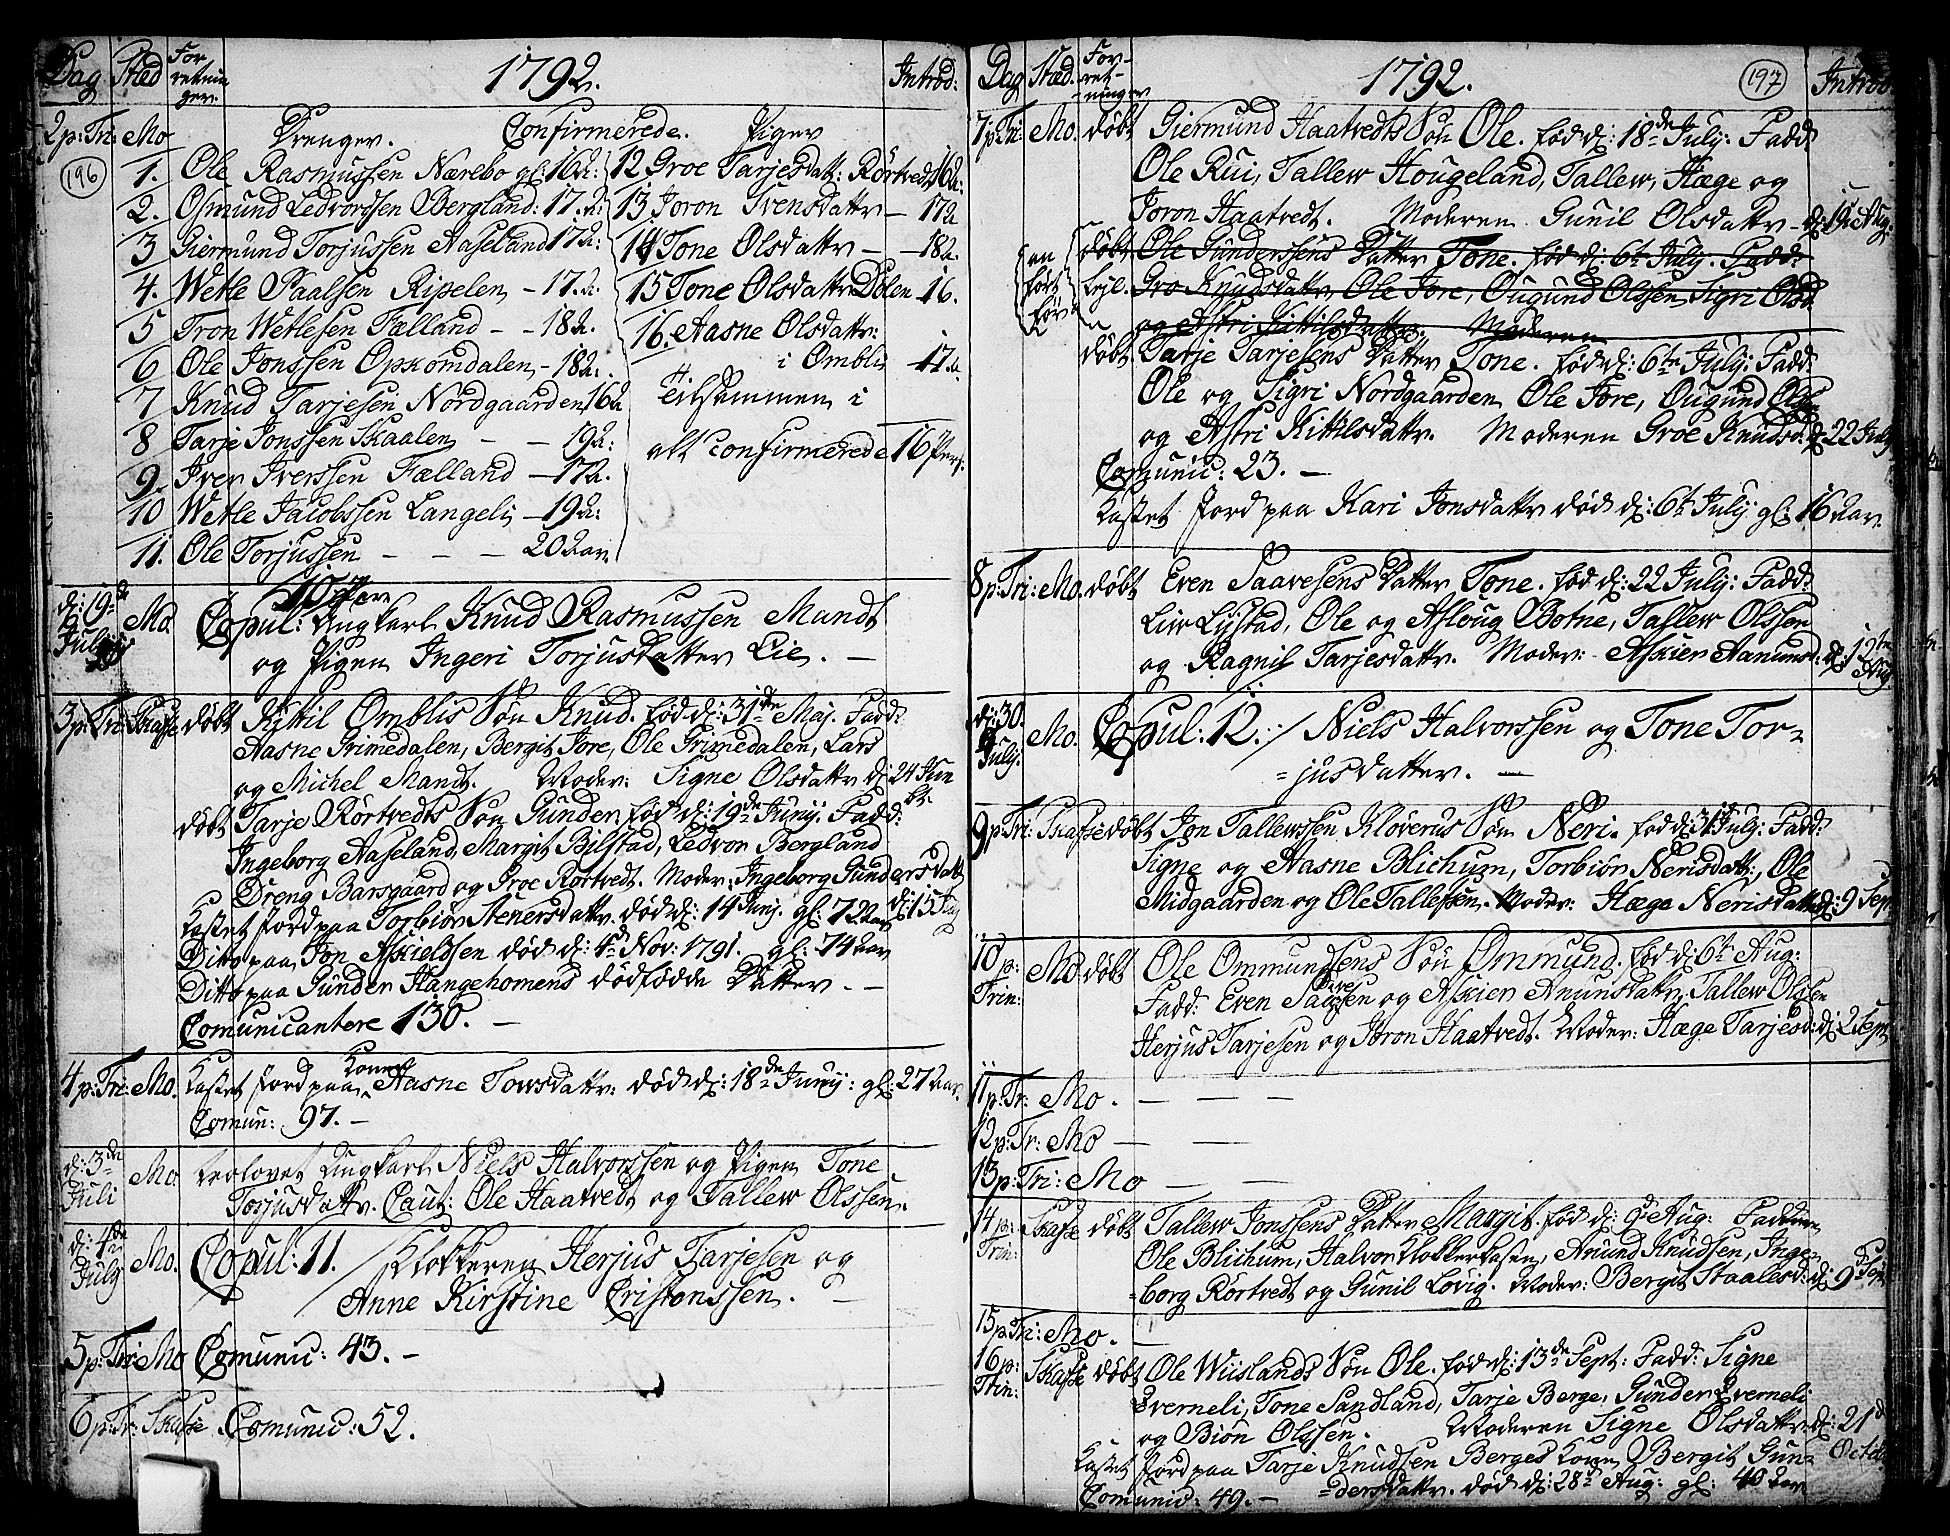 Dag Stæd Forretninger 1792. Introd:
2 p: Tri: Mo Drenger. Confirmerede. Piger
196
1. Ole Rasmussen Nærebo gl: 16 a:
2. Osmund Ledvordsen Bergland: 17. a:
3 Giermund Torjussen Aaseland 17 a:
4. Wetle Paalsen Ripelen - 17. a:
5 Tron Wetlesen Fælland - - 18 a.
6 Ole Jonssen Opkomdalen - 18 a.
7 Knud Tarjesen Nordgaarden 16 a
8 Tarje Jonssen Skaalen - - 19 a:
9. Iver Iverssen Fælland - 17 a.
10 Wetle Jacobssen Langeli - 19 a:
11. Ole Torjussen - - - 20 aar
12 Groe Tarjesdatt: Rørtvedt 16 a:
13 Joron Svensdattr - 17 a
14 Tone Olsdattr - - 18 a.
15 Tone Olsdattr Dølen 16.
16. Aasne Olsdattr:
i Omblie 17 a.
Tilsammen i
alt confirmerede 16 Pers:
d: 19de Junij Mo. Copul: 10 Par Ungkarl Knud Rasmussen Mandt
og Pigen Ingeri Torjusdatter Lie. -
3 p: Tri: Skafse døbt Kittil Omblis Søn Knud. fød d: 31de Maj. Fadd:
Aasne Grimedalen, Bergit Jore, Ole Grimedalen, Lars
og Michel Mandt. Moder: Signe Olsdattr d: 24 Jun
døbt Tarje Rørtvedts Søn Gunder, fød d: 19de Junij. Fadd:
Ingeborg Aaseland, Margit Bilstad, Ledvor Bergland
Dreng Barsgaard og Groe Rørtvedt. Moder: Ingeborg Gundersdatt
d: 15 July
Kastet Jord paa Torbiør Aenersdattr. død d: 14 Junij. gl: 72 aar
Ditto paa Jon Askieldsen død d: 4d Nov: 1791. gl: 74 aar
Ditto paa Gunder Hangehomens dødfødde Datter. -
Comunicantere 130. -
4 p: Tri: Mo. Kastet Jord paa Konen Aasne Towsdattr: død d: 18de Junij: gl: 27 aar.
Comun: 97. -
d: 3de Juli Mo. Trolovet Ungkarl Niels Halvorssen og Pigen Tone
Torjusdattr. Caut: Ole Haatvedt og Tallew Olssen.
d: 4de July Mo. Copul: 11. / Klokkeren Herjus Tarjesen og
Anne Kirstine Cristenssen. -
5 p: Tri: Mo Comunic: 43. -
6 p: Tr: Skafse. Comunic: 52.
Dag Stæd. Forretninger 1792. 197 Introd:
7 p: Tri: Mo. døbt Giermund Haatvedts Søn Ole. fød d: 18de July: Fadd
Ole Rui, Tallew Hougeland, Tallew, Hæge og
Joron Haatvedt. Moderen Gunil Olsdattr - d: 19de Aug.
døbt Ole Gunderssens Datter Tone. fød d: 6te July. Fadd:
Gro Knudsdattr, Ole Jore, Ougund Olssen, Sigri Olsd
og Astri Kittilsdatter. Moderen
døbt Tarje Tarjesens Datter Tone. fød d: 6te July: Fadd:
Ole og Sigri Nordgaarden, Ole Jore, Ougund Olsen
og Astri Kittilsdattr. Moderen Groe Knudsd: d: 22 July
Comunic: 23. -
Kastet Jord paa Kari Jonsdattr død d: 6te July gl: 16 aar
8 p: Tri: Mo. døbt Even Saavesens Datter Tone. fød d: 22 July: Fadd:
Liw Lystad, Ole og Asloug Botne, Tallew Olssen
og Ragnil Tarjesdattr. Moder: Askier Aanunsd: d: 19te Aug
d: 30. July. Mo. Copul: 12. / Niels Halvorssen og Tone Tor-
=jusdatter. -
9 p: Tri: Skafse døbt Jon Tallewssen Kloverus Søn Neri. fød d: 31 July: Fadd:
Signe og Aasne Blichum, Torbiør Nerisdatt:, Ole
Midgaarden og Ole Tallefsen. Moder: Hæge Nerisdatter d: 9 Sept
10 p: Trin: Mo. døbt Ole Ommundsens Søn Ommund. fød d: 6te Aug:
Fadd: Even Saavesen og Askier Anunsdattr, Tallew Olssen
Herjus Tarjesen og Joron Haatvedt. Moder: Hæge Tarjesd: d: 2 Sept
11 p: Tr: Mo. - - -
12 p: Tr: Mo - -
13 p: Tri: Mo - -
14 p: Trin: Skafse døbt Tallew Jonssens Datter Margit. fød d: Aug: Faddere
Ole Blichum, Halvor Klokkerhasen, Anund Knudsen, Inge-
=borg Rørtvedt og Gunil Lovig. Moder: Bergit Staalesd: d: 9d Sept
15 p: Tri: Mo. -
16 p: Trin: Skafse døbt Ole Wiislands Søn Ole. fød d: 13de Sept: Fadd: Signe
Everneli, Tone Sandland, Tarje Berge, Gunder Everneli
og Biøn Olssen. Moderen Signe Olsdattr: d: 21d Octob:
Kastet Jord paa Tarje Knudsen Berges Kone Bergit Gun-
Comunic: 49. - =dersdattr. død d: 28d Aug: gl: 40 aar